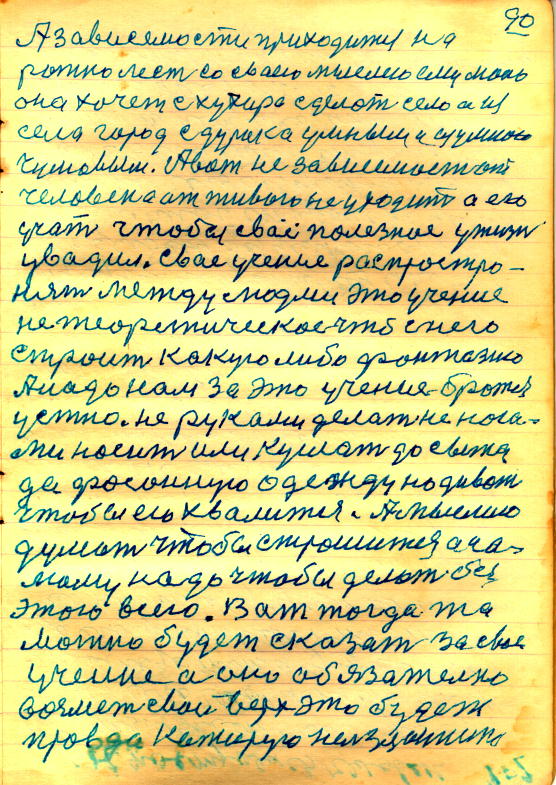 90
А зависемости приходится на
рожно лест со своею мыслею ему мало
она хочет с хутира сделот село а из
села город с дурака умным и
чумовым. А вот не зависемост от
человека от живого не уходит а его
учат чтобы своё полезное у жизни
увадил. Свае учение распростро-
нят между людми это учение
не теоретическое чтоб с него
строит какую либо фонтазию
А надо нам за это учение братся
устно. не руками делат не нога-
ми носит или кушат до сыта
да фасонную одежду надиват
чтобы его хвалится. А мыслию
думат чтобы строшится а са-
мому надо чтобы делат без
этого всего. Ват тогда та
можно будет сказат за свае
учение а оно обязателно
возмет свой верх это будет
правда каторую нелзя